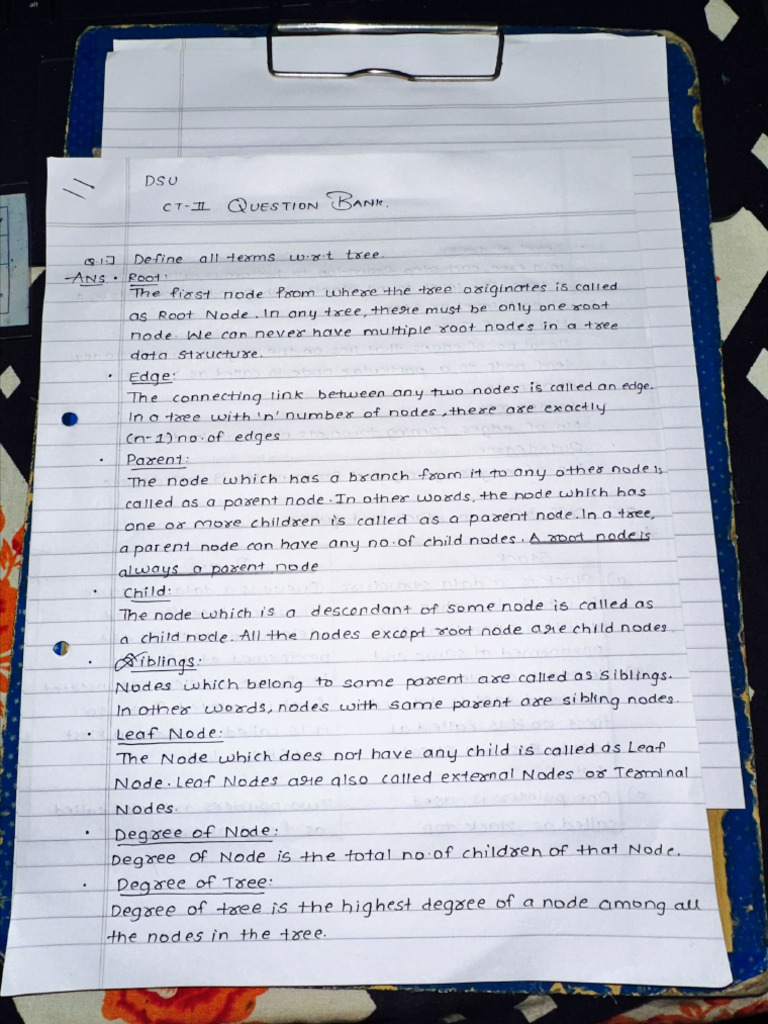 DSU
CT-II QUESTION BANK.
Q1] Define all terms w.r.t tree.
ANS • Root:
The first node from where the tree originates is called
as Root Node. In any tree, there must be only one root
node. We can never have multiple root nodes in a tree
data structure.
• Edge:
The connecting link between any two nodes is called an edge.
In a tree with 'n' number of nodes, there are exactly
(n-1) no. of edges
• Parent:
The node which has a branch from it to any other node is
called as a parent node. In other words, the node which has
one or more children is called as a parent node. In a tree,
a parent node can have any no. of child nodes. A root node is
always a parent node
• Child:
The node which is a descendant of some node is called as
a child node. All the nodes except root node are child nodes.
• Siblings:
Nodes which belong to same parent are called as siblings.
In other words, nodes with same parent are sibling nodes.
• Leaf Node:
The Node which does not have any child is called as Leaf
Node. Leaf Nodes are also called external Nodes or Terminal
Nodes.
• Degree of Node:
Degree of Node is the total no. of children of that Node.
• Degree of Tree:
Degree of tree is the highest degree of a node among all
the nodes in the tree.